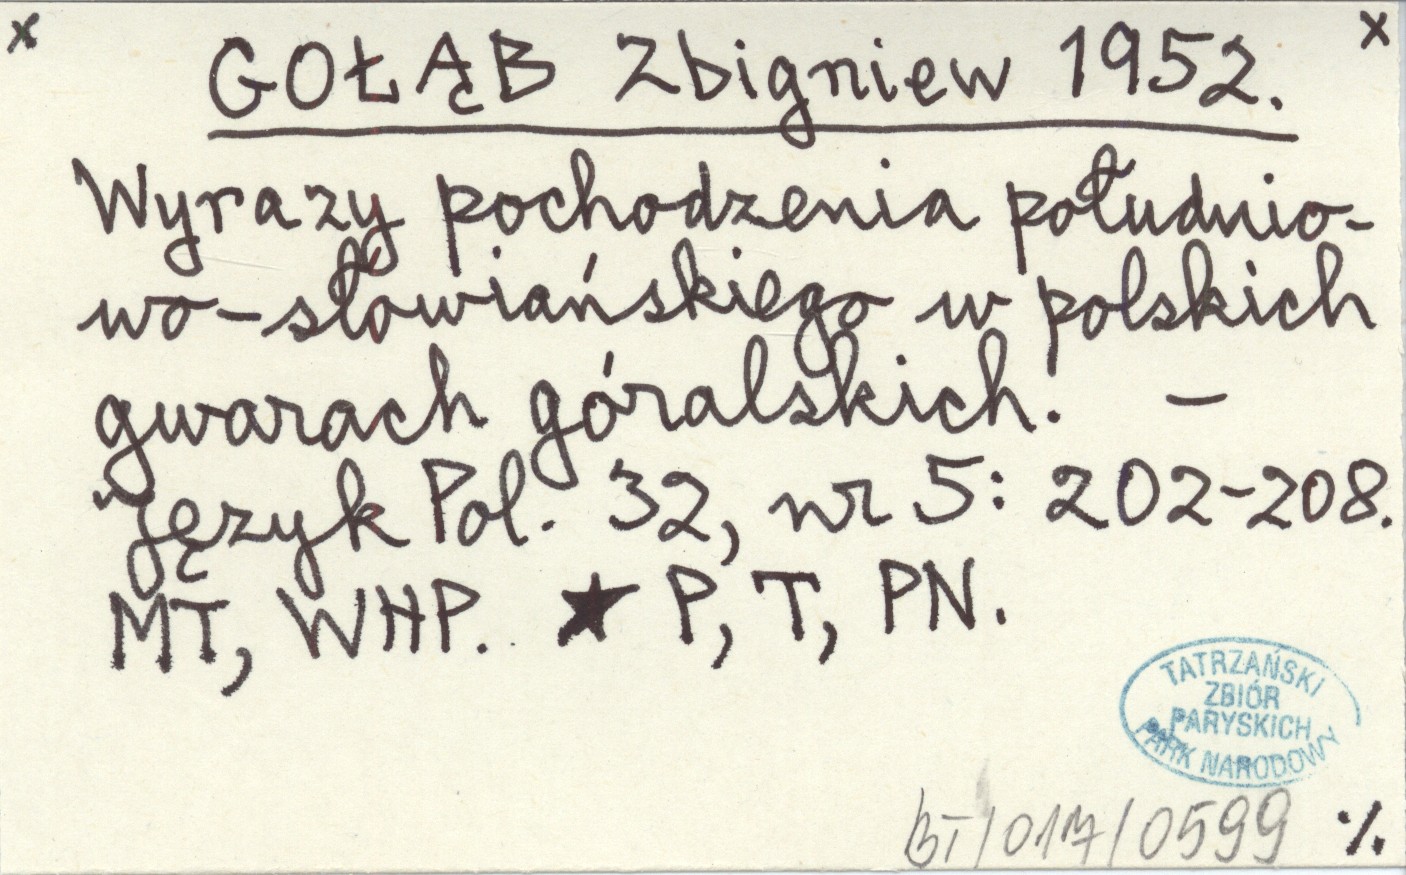 x x
GOŁĄB Zbigniew 1952.
Wyrazy pochodzenia południo-
wo-słowiańskiego w polskich
gwarach góralskich. –
Język Pol. 32, nr 5: 202-208.
MT, WHP. ★ P, T, PN.
TATRZAŃSKI
ZBIÓR
PARYSKICH
PARK NARODOWY
BT/017/0599 %.